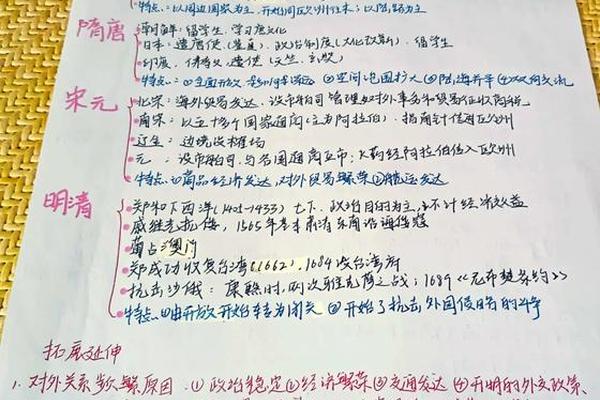 特点:以周边国家为主,开始同欧洲往来;以陆路为主
隋唐
朝鲜:留学生、学习唐文化
日本:遣唐使(鉴真)、政治制度(大化改新)、留学生
特点:①全面开放 ②空间范围扩大 ③陆海并举 ④双向交流
宋元
北宋:海外贸易发达、设市舶司管理对外事务和贸易征收商税
南宋:以五十多个国家通商(主为阿拉伯)、指南针传直欧洲
辽:边境设榷场
元:设市舶司、与各国通商互市;火药经阿拉伯传入欧洲
特点:①商品经济发达,对外贸易繁荣②航运发达
明清
郑和下西洋(1405-1433)七下、政治目的为主,不计经济效益
戚继光抗倭,1565年基本肃清东南沿海倭寇
葡占澳门
郑成功收复台湾(1662),1684设台湾府
抗击沙俄:康熙时,两次雅克萨之战;1689《尼布楚条约》
特点:①由开放开始转为闭关 ②开始了抗击外国侵略的斗争
拓展延伸
1、对外关系频繁原因:①政治稳定②经济繁荣③交通发达④开明的外交政策、